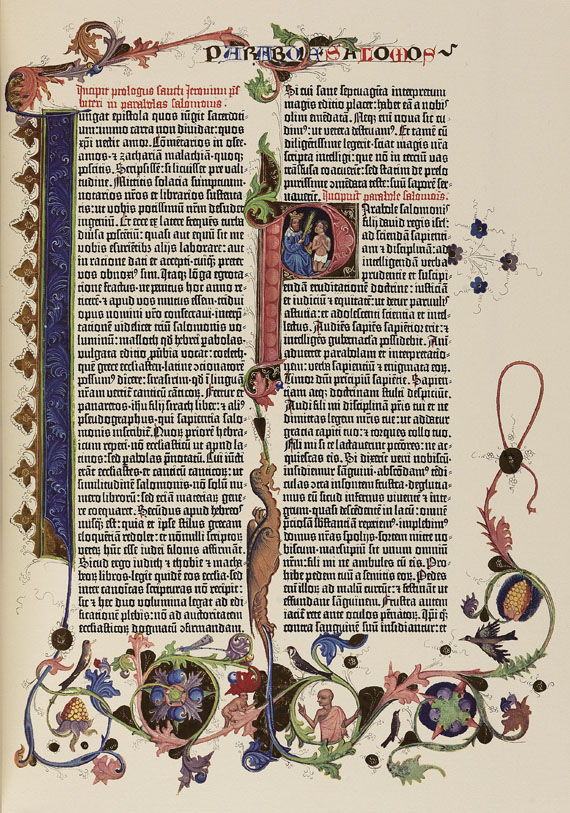 PARABOLE SALOMOIS
Incipit prologus sancti Jeronimi
in parabolas salomonis.
Iungat epistola quos iūgit sacerdoti-
um: immo carta non dividat: quos
xp̄i nectit amor. Cōmētarios in osee·
amos· ⁊ zachariam malachiā· quoqꝫ
poscitis. Scripsissē: si licuisset pre vali-
tudine. Mittitis solacia sumptuum·
notarios nr̄os et librarios sustenta-
tis: ut vobis potissimū nr̄m desudet
ingeniū. Et ecce ex latere frequēs turba
diversa poscētiū: quasi aut equū sit me
vobis esurientibꝫ alijs laborare: aut
in ratione dati et accepti· cuiqꝫ preter
vos obnoxiꝰ sim. Itaqꝫ lōga egrota-
tione fractus· ne penitus hoc anno re-
ticerē· ⁊ apud vos mutus essem· tridui
opus nomini vr̄o consecravi· interp̄-
tationē videlicet triū salomonis vo-
luminū: masloth qd̄ hebrei pabolas·
vulgata editio ꝓverbia vocat: coeleth·
quē grece eccl̄iasten· latine cōcionatorē
possumꝰ dicere: sirasirim· qd̄ ī linguā
nr̄am vertit̄ canticū canticoꝝ. Fertur et
panaretos· ihū filij sirach liber: ⁊ aliꝰ
pseudographus· qui sapientia salo-
monis inscribit̄. Quoꝝ priorē hebra-
icum reperi· nō eccl̄iasticū ut apud la-
tinos: sed pabolas p̄notatū. Cui iūcti
erāt eccl̄iastes· et canticū canticoꝝ: ut
similitudinē salomonis· nō solū nu-
mero libroꝝ: sed etiā materiaꝝ gene-
re coequaret. Secūdus apud hebreos
nusqꝫ est: quia et ip̄e stilus grecam
eloquētiā redolet: et nōnulli scriptoꝝ
veterū hūc esse iudei filonis affirmāt.
Sicut ergo iudith ⁊ thobie ⁊ macha-
beoꝝ libros· legit quidē eos eccl̄ia· sed
inter canonicas scripturas nō recipit:
sic ⁊ hec duo volumina legat ad edi-
ficationē plebis: nō ad auctoritatem
eccl̄iasticoꝝ dogmatū ꝯfirmandam.
Si cui sane septuaginta interpretum
magis editio placet: habet eā a nobis
olim emēdatā. Neqꝫ em̄ nova sic cu-
dimꝰ: ut vetera destruamꝰ. Et tamē cū
diligētissime legerit· sciat magis nr̄a
scripta intelligi: que nō in terciū vas
trāsfusa coacuerīt: sed statim de prelo
purissime cōmēdata teste: suū saporē ser-
vaverīt. Incipiūt parabole salomonis.
Parabole salomonis
filij david regis isrl̄:
ad sciendā sapienti-
am ⁊ disciplinā: ad
intelligendā verba
prudentie et suscipi-
endā eruditationē doctrine: iusticiā
et iudiciū ⁊ equitatē: ut detur parvulis
astutia: et adolescenti sciencia et intel-
lectus. Audiēs sapiēs sapiētior erit: ⁊
intelligēs gubernacla possidebit. Ani-
advertet parabolam et interpretatio-
nem: verba sapientiū ⁊ enigmata eoꝝ.
Timor dn̄i principiū sapiētie. Sapien-
ciam atqꝫ doctrinam stulti despiciūt.
Audi fili mi disciplinā pr̄is tui et ne
dimittas legem mr̄is tue: ut addatur
gracia capiti tuo: ⁊ torques collo tuo.
Fili mi si te lactaverint pctōres: ne ac-
quiescas eis. Si dixerīt veni nobiscū·
insidiemur sāguini· abscōdamꝰ tēdi-
culas ꝯtra insontem frustra· deglutia-
mus eū sicut infernus viventē ⁊ inte-
grum· quasi descēdētē in lacū: omnē
p̄ciosā substāciā reperiemꝰ· implebimꝰ
domus nr̄as spolijs· sortem mitte no-
biscum· marsupiū sit unum omniū
nr̄m: fili mi ne ambules cū eis. Pro-
hibe pedem tuū a semitis eoꝝ. Pedes
em̄ illoꝝ ad malū currūt: ⁊ festināt ut
effundant sanguinem. Frustra autem
iacit̄ rete ante oculos pēnatoꝝ. Ipi qꝫ
contra sanguinē suū insidiantur: et